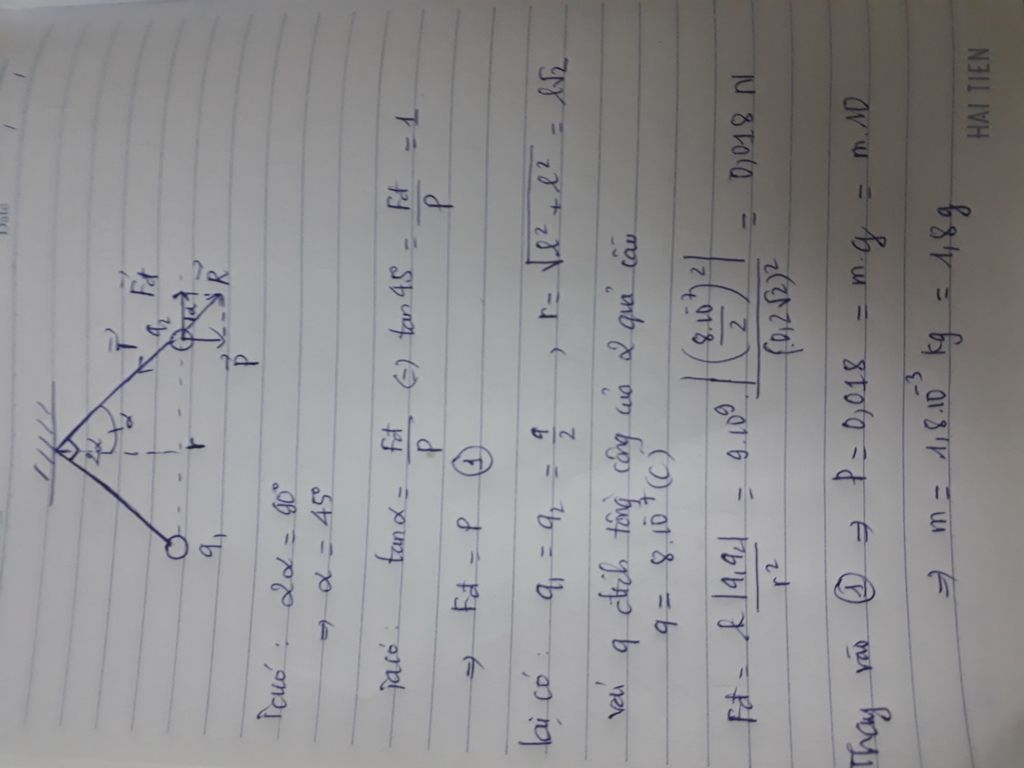 Date
2α
α
T
Fđt
q₁
q₂
r
P
R
Ta có: 2α = 90°
⇒ α = 45°
Ta có: tanα = Fđt/P (=) tan45 = Fđt/P = 1
⇒ Fđt = P ①
Lại có: q₁ = q₂ = q/2, r = √(l² + l²) = l√2
với q đtích tổng cộng của 2 quả cầu
q = 8.10⁻⁷ (C)
Fđt = k|q₁q₂|/r² = 9.10⁹ |(8.10⁻⁷/2)²|/(0,2√2)² = 0,018 N
Thay vào ① ⇒ P = 0,018 = m.g = m.10
⇒ m = 1,8.10⁻³ kg = 1,8g
HAI TIEN